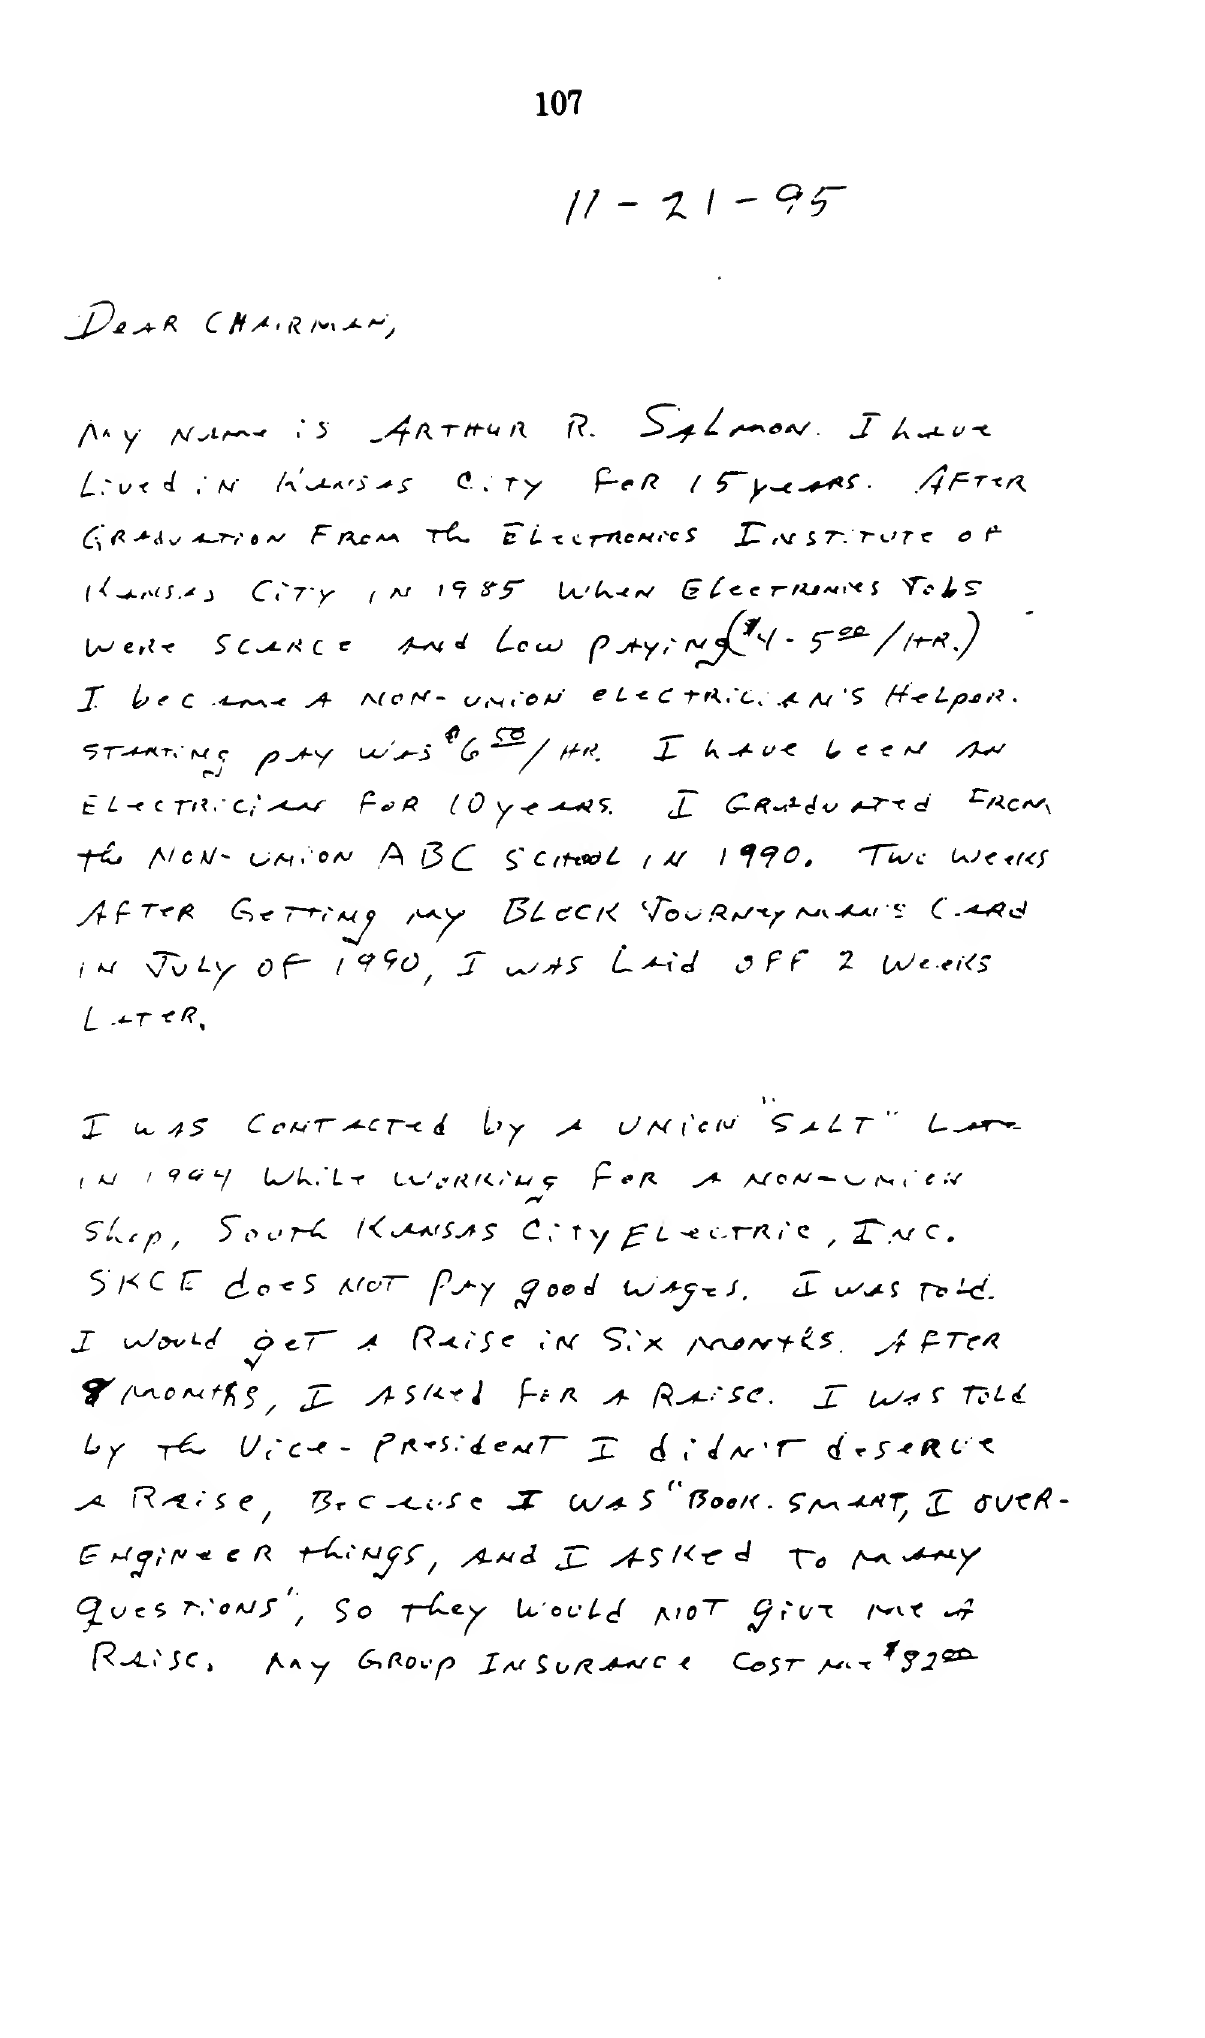 107
11-21-95
Dear Chairman,
My name is Arthur R. Salmon. I have
Lived in Kansas City for 15 years. After
Graduation from the Electronics Institute of
Kansas City in 1985 when Electronics Jobs
were scarce and low paying ($4-5⁰⁰/HR.)
I became a non-union electrician's Helper.
starting pay was $6⁵⁰/HR. I have been an
Electrician for 10 years. I Graduated From
the Non-union ABC School in 1990. Two weeks
After Getting my Block Journeyman's Card
in July of 1990, I was laid off 2 weeks
Later.
I was contacted by a union "Salt" Late
in 1994 while working for a non-union
Shop, South Kansas City Electric, Inc.
SKCE does not pay good wages. I was told.
I would get a Raise in Six months. After
8 months, I asked for a Raise. I was told
by the Vice-President I didn't deserve
a Raise, Because I was "Book-smart, I over-
Engineer things, and I asked to many
questions", so they would not give me a
Raise. My Group Insurance cost me $82⁰⁰